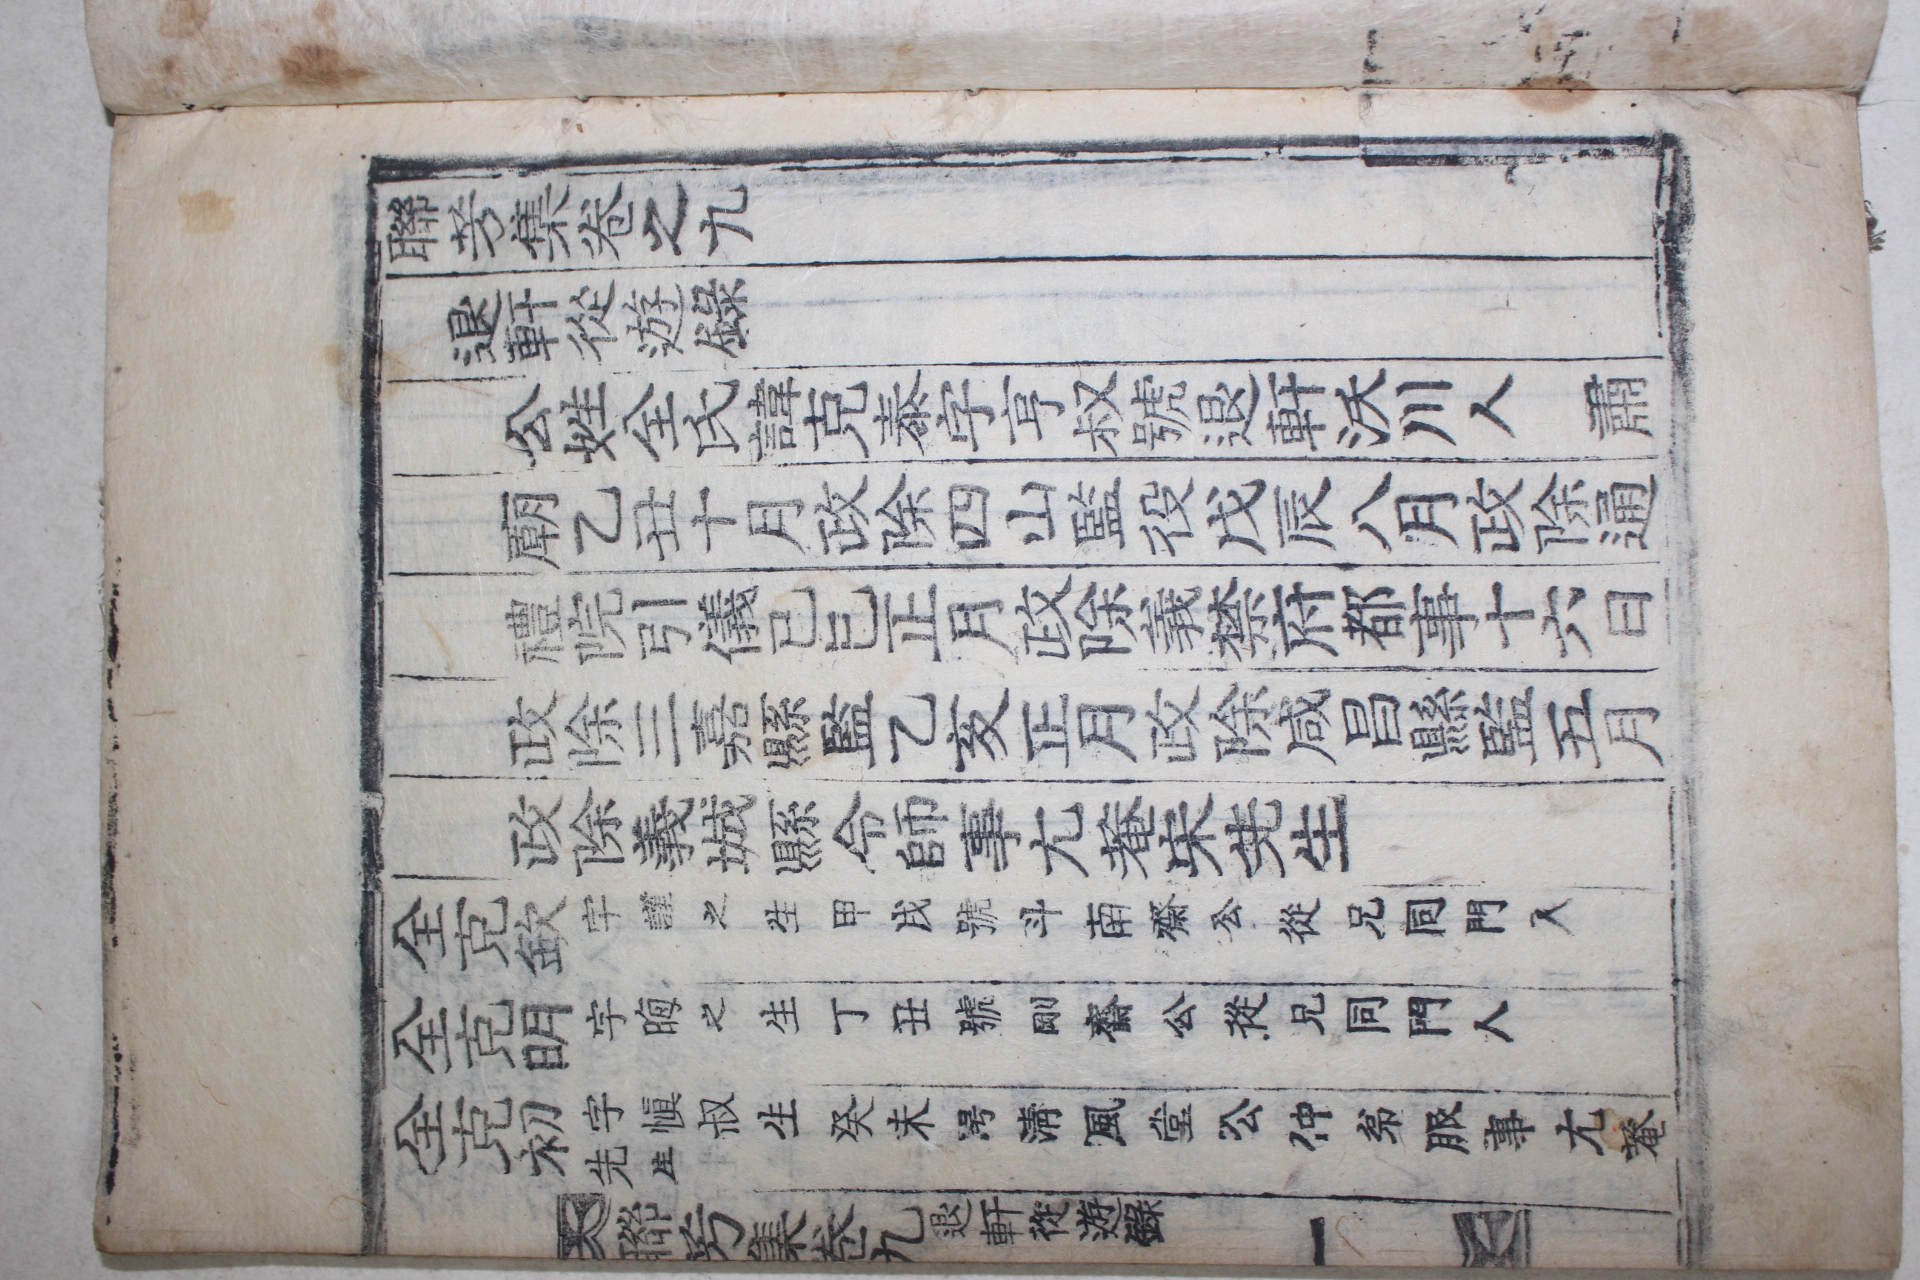 聯芳集卷之九
退軒從遊錄
公姓全氏諱克泰字亨叔號退軒沃川人 肅
廟乙丑十月政除四山監役戊辰八月政除通
禮院引儀己巳正月政除義禁府都事十六日
政除三嘉縣監乙亥正月政除咸昌縣監五月
政除義城縣令師事尤菴宋先生
全克欽字謹之生甲戌號斗南齋公從兄同門人
全克明字晦之生丁丑號剛齋公從兄同門人
全克初字愼叔生癸未号淸風堂公仲弟服事尤菴
先生
聯芳集卷九 退軒從遊錄 一